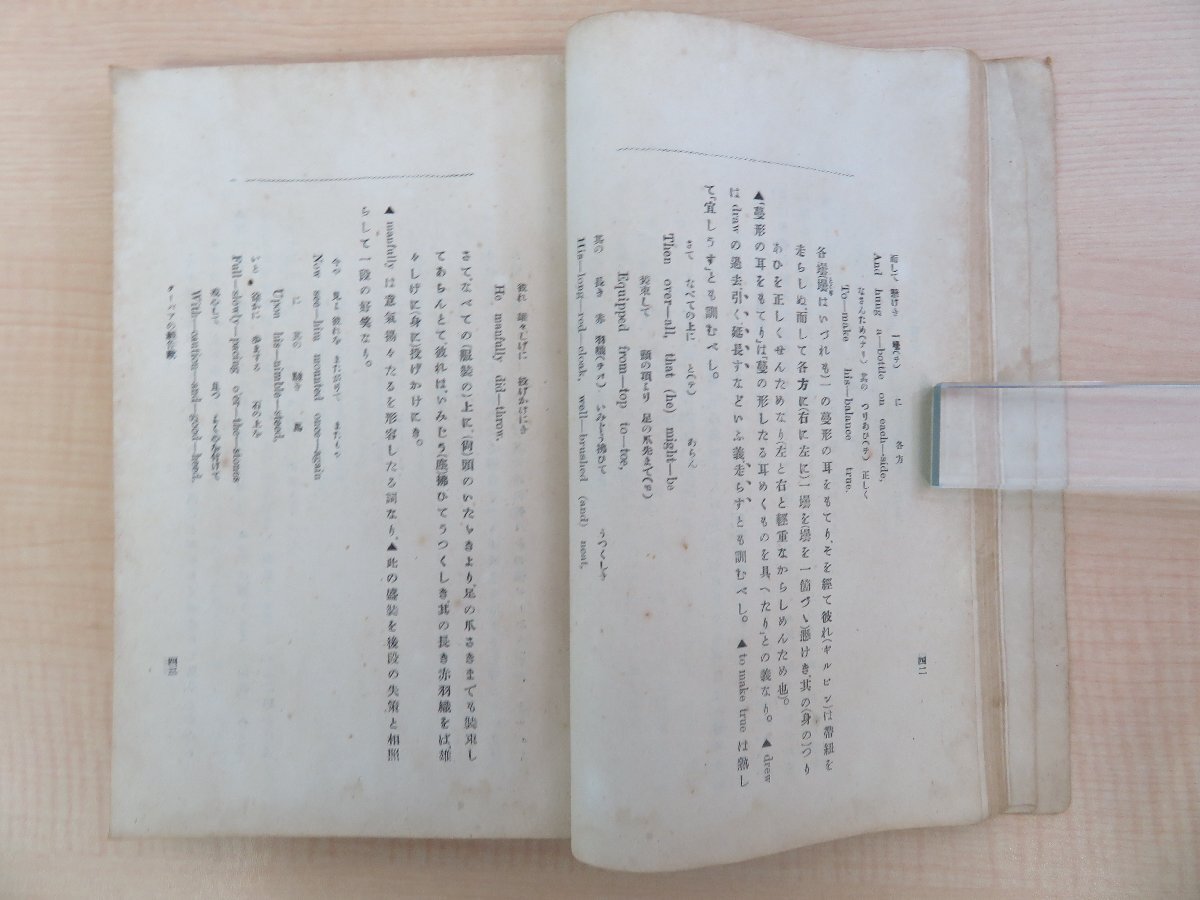 四二
而して 懸けき 一壜(ヲ) に 各方
And hung a—bottle on each—side,
なさんため(ナリ) 其の つりあひ(ヲ) 正しく
To—make his—balance true.
各壜壜はいづれも)一の蔓形の耳をもてり、そを經て彼れ(ギルピン)は帶紐を
走らしぬ、而して各方に(右に左に)一壜を(壜を一箇づゝ)懸けき、其の(身の)つり
あひを正しくせんためなり(左と右と輕重なからしめんため也)。
▲「蔓形の耳をもてり」は蔓の形したる耳めくものを具へたり」との義なり。▲drew
は draw の過去引く延長すなどいふ義、走らすとも訓むべし。▲to make true は熟し
て「宜しうす」とも訓むべし。
さて なべての上に と(テ) あらん
Then over—all, that (he) might—be
裝束して 頭の頂より 足の爪先まで(ヲ)
Equipped from—top to—toe,
其の 長き 赤 羽織(ヲバ) いみじう拂ひて うつくしき
His—long—red—cloak, well—brushed (and) neat,
彼れ 雄々しげに 投げかけにき
He manfully did—throw.
さてなべての(服裝の)上に、(街)頭のいたゞきより、足の爪さきまでも裝束し
てあらんとて彼れは、いみじう(塵)拂ひてうつくしき、其の長き赤羽織をば、雄
々しげに(身に)投げかけにき。
▲manfully は意氣揚々たるを形容したる詞なり、▲此の盛裝を後段の失策と相照
らして一段の好笑なり。
今や 見よ彼れを またがりて またもや
Now see—him mounted once—again
に 其の 駿き 馬
Upon his—nimble—steed,
いと 徐ろに 歩まする 石の上を
Full—slowly—pacing o'er—the—stones
且つ よく心を付けて
With—caution—and—good—heed.
四三